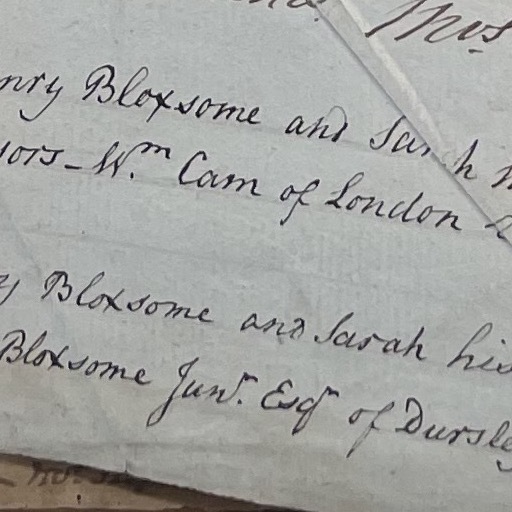 Thos
nry Bloxsome and Sarah
sors - Wm Cam of London
y Bloxsome and Sarah his
Bloxsome Junr. Esqr of Dursley